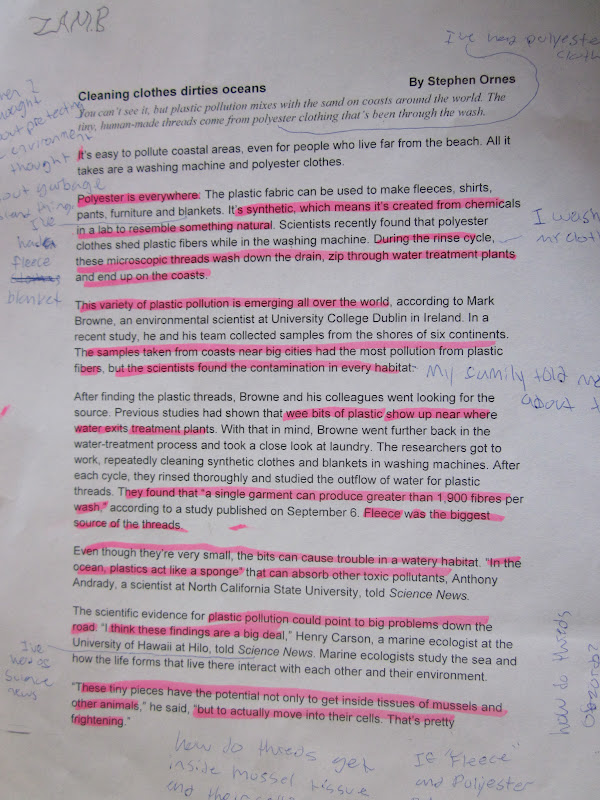 ZAM.B
I've had polyester
Cleaning clothes dirties oceans By Stephen Ornes
You can't see it, but plastic pollution mixes with the sand on coasts around the world. The
tiny, human-made threads come from polyester clothing that's been through the wash.
It's easy to pollute coastal areas, even for people who live far from the beach. All it
takes are a washing machine and polyester clothes.
Polyester is everywhere. The plastic fabric can be used to make fleeces, shirts,
pants, furniture and blankets. It's synthetic, which means it's created from chemicals
in a lab to resemble something natural. Scientists recently found that polyester
clothes shed plastic fibers while in the washing machine. During the rinse cycle,
these microscopic threads wash down the drain, zip through water treatment plants
and end up on the coasts.
This variety of plastic pollution is emerging all over the world, according to Mark
Browne, an environmental scientist at University College Dublin in Ireland. In a
recent study, he and his team collected samples from the shores of six continents.
The samples taken from coasts near big cities had the most pollution from plastic
fibers, but the scientists found the contamination in every habitat.
After finding the plastic threads, Browne and his colleagues went looking for the
source. Previous studies had shown that wee bits of plastic show up near where
water exits treatment plants. With that in mind, Browne went further back in the
water-treatment process and took a close look at laundry. The researchers got to
work, repeatedly cleaning synthetic clothes and blankets in washing machines. After
each cycle, they rinsed thoroughly and studied the outflow of water for plastic
threads. They found that "a single garment can produce greater than 1,900 fibres per
wash," according to a study published on September 6. Fleece was the biggest
source of the threads.
Even though they're very small, the bits can cause trouble in a watery habitat. "In the
ocean, plastics act like a sponge" that can absorb other toxic pollutants, Anthony
Andrady, a scientist at North Carolina State University, told Science News.
The scientific evidence for plastic pollution could point to big problems down the
road. "I think these findings are a big deal," Henry Carson, a marine ecologist at the
University of Hawaii at Hilo, told Science News. Marine ecologists study the sea and
how the life forms that live there interact with each other and their environment.
"These tiny pieces have the potential not only to get inside tissues of mussels and
other animals," he said, "but to actually move into their cells. That's pretty
frightening."
thought
protecting
environment
thought
garbage
I've
had a
fleece
blanket
I wash
my
My family told me
about
I've
Science
news
how do threds
how do threds get
inside mussel tissue
and their
If "Fleece"
and Pulyester